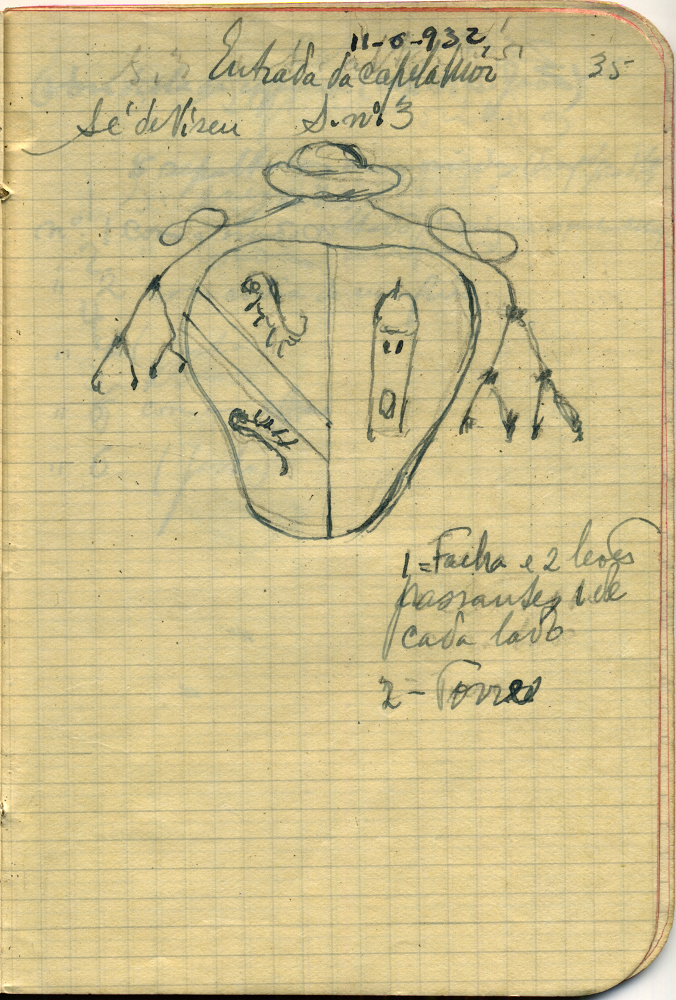 11-6-932
Entrada da capela Mór
35
Sé de Viseu S. nº 3
1=Facha e 2 leões
passantes 1 de
cada lado
2- Torre